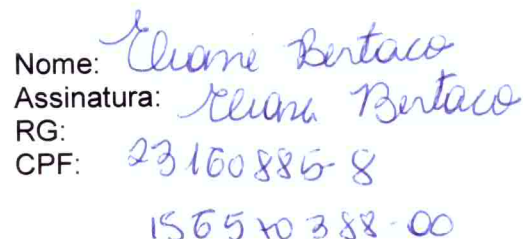 Nome: Eliane Bertaco
Assinatura: Eliane Bertaco
RG:
CPF: 23160885-8
156570388-00